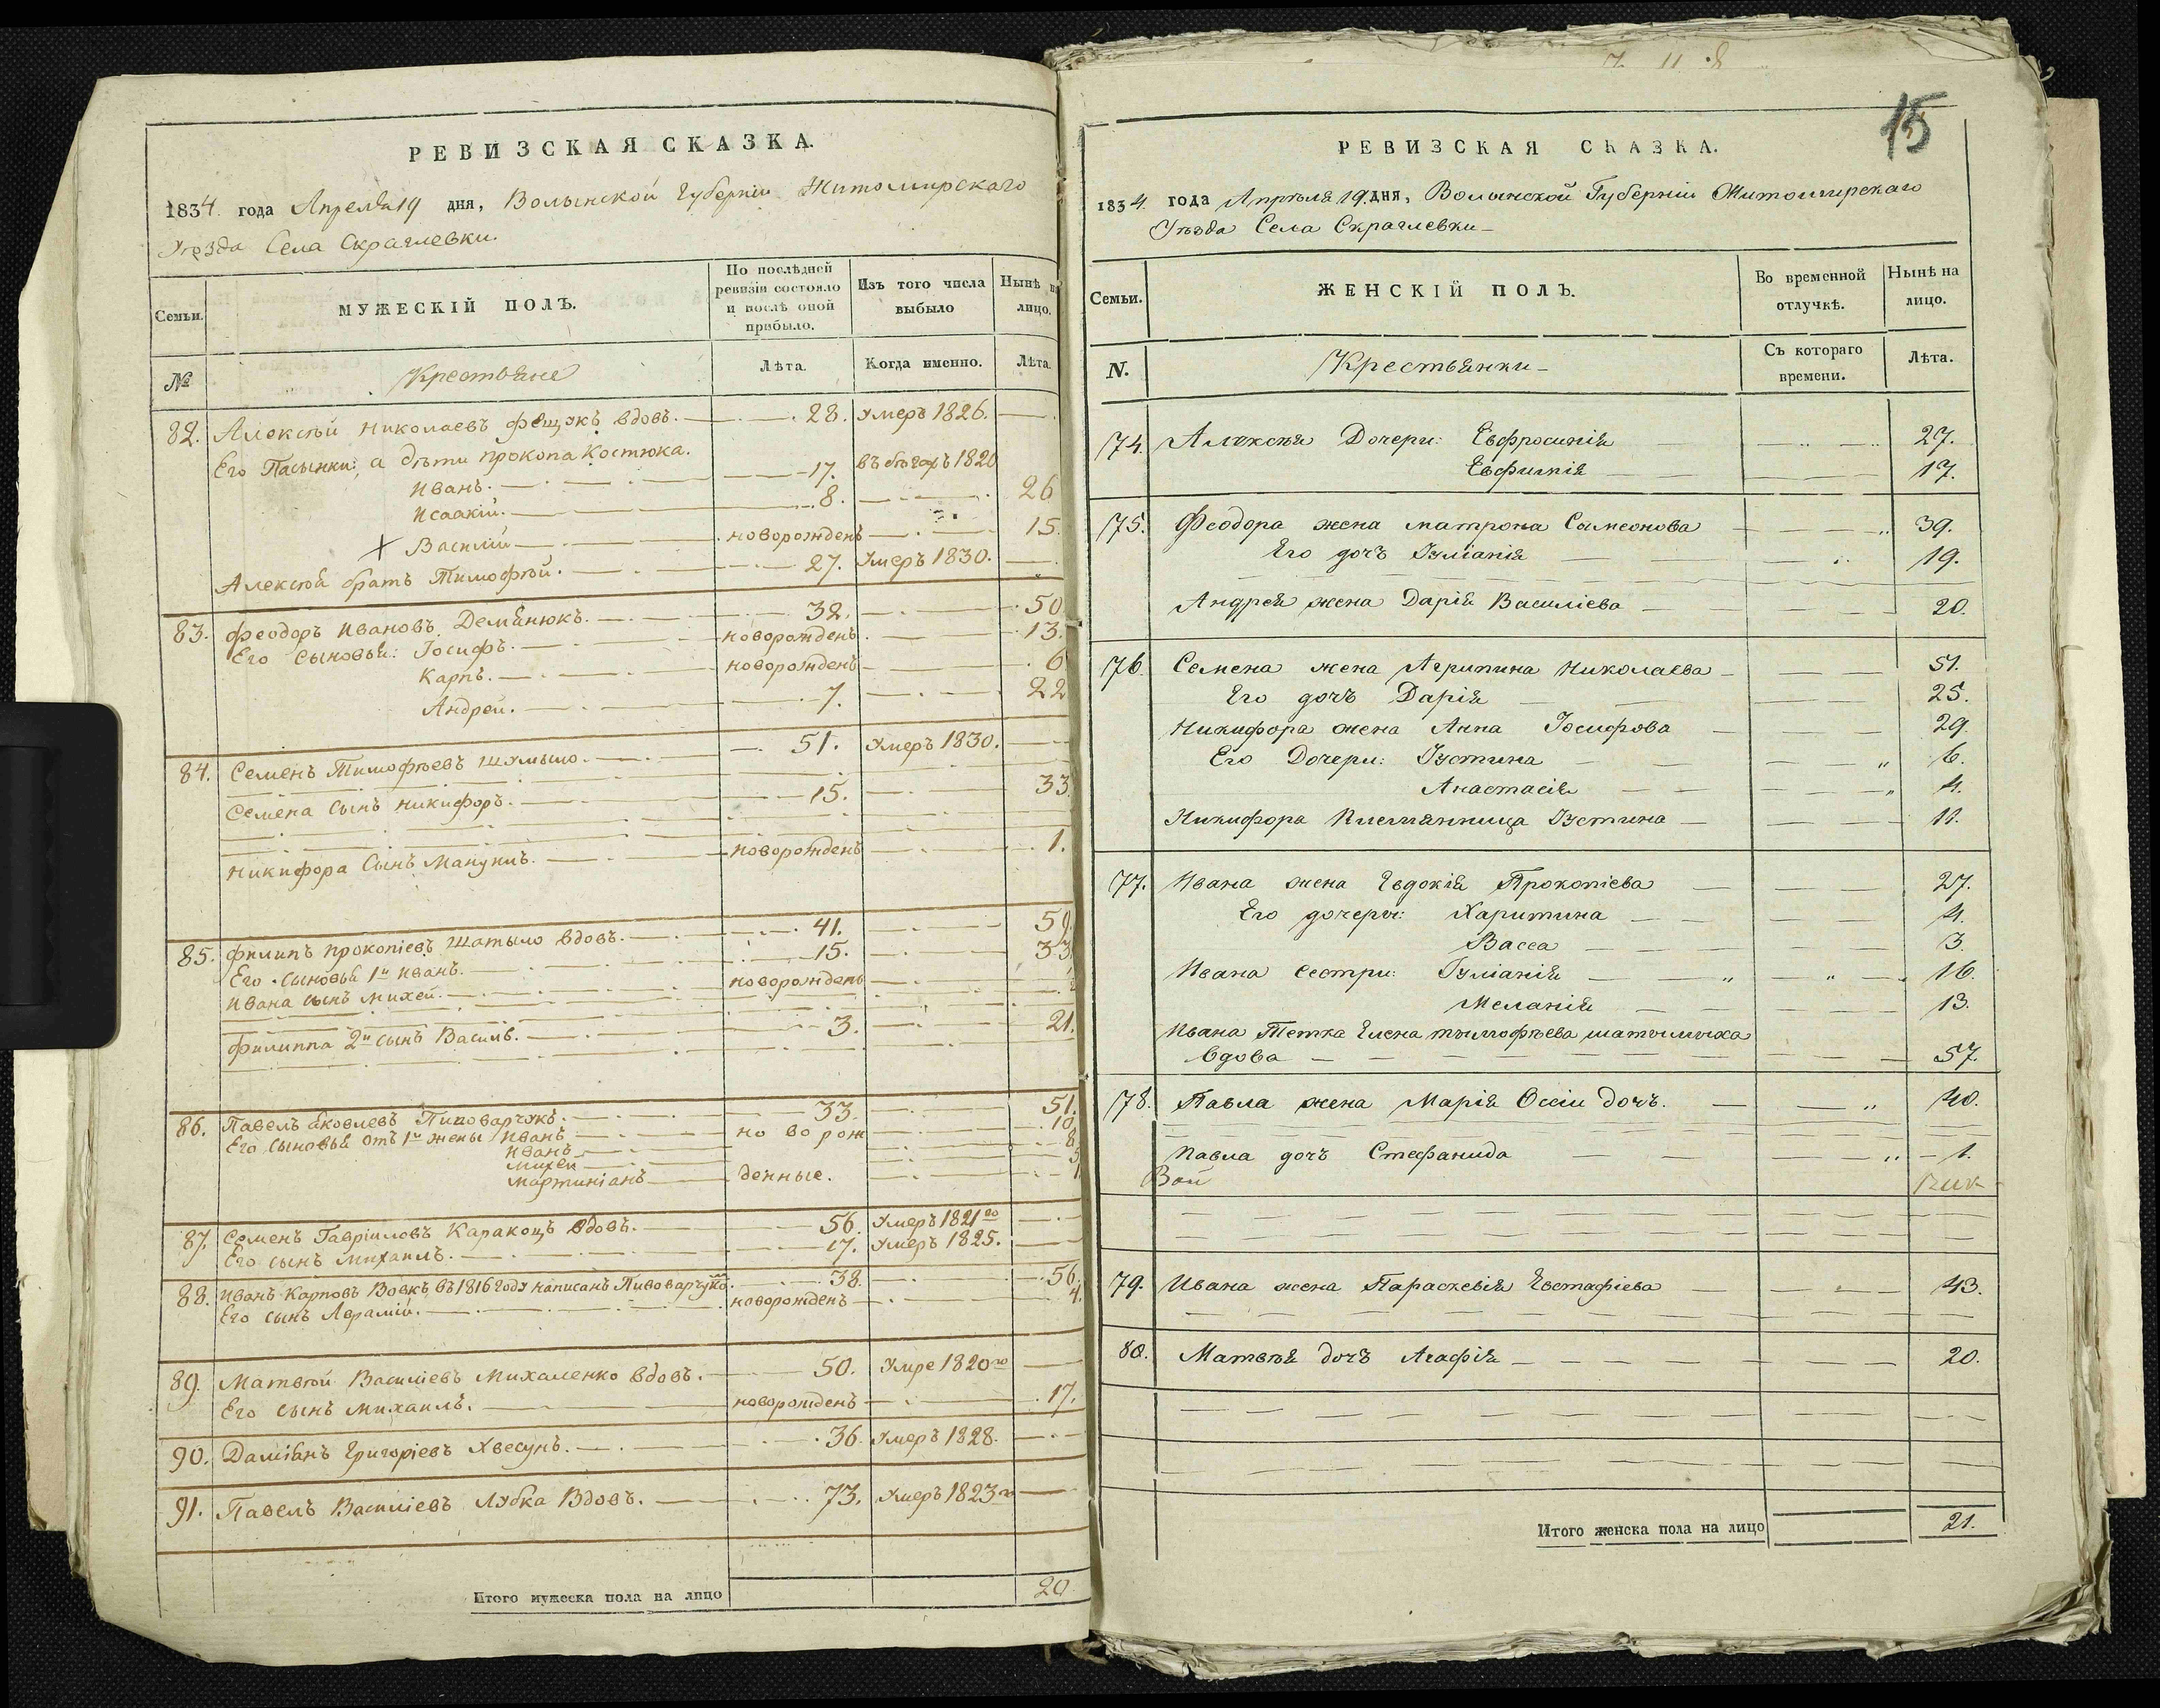 РЕВИЗСКАЯ СКАЗКА.
1834. года Апреля 19 дня, Волынской Губерніи Житомирскаго
Уѣзда Села Скраглевки.
Семьи.
МУЖЕСКІЙ ПОЛЪ.
По послѣдней ревизіи состояло и послѣ оной прибыло.
Изъ того числа выбыло
Нынѣ на лицо.
№
Крестьяне
Лѣта.
Когда именно.
Лѣта.
82. Алексѣй Николаевъ Фещукъ вдовъ. 28. Умеръ 1826.
Его Пасынки, а дѣти Прокопа Костюка.
Иванъ. 17. въ бѣгахъ 1820
Исаакій. 8. 26
Василій новорожденъ 15.
Алексѣя братъ Тимофѣй. 27. Умеръ 1830.
83. Феодоръ Ивановъ Демянюкъ. 32. 50.
Его Сыновья: Іосифъ. новорожденъ. 13.
Карпъ. новорожденъ 6
Андрей. 7. 22
84. Семенъ Тимофѣевъ Шумыло. 51. Умеръ 1830.
Семена Сынъ Никифоръ. 15. 33.
Никифора Сынъ Мануилъ. новорожденъ 1.
85. Филипъ Прокопіевъ Шатыло вдовъ. 41. 59.
Его Сыновья 1й Иванъ. 15. 33
Ивана сынъ Михей. новорожденъ
Филиппа 2й сынъ Василь. 3. 21.
86. Павелъ Яковлевъ Пивоварчукъ. 33. 51.
Его Сыновья отъ 1й жены Иванъ но во рож 10.
Иванъ 8.
Михей 5
Мартиніанъ денные. 1
87. Семенъ Гавріиловъ Каракоцъ вдовъ. 56. Умеръ 1821го
Его сынъ Михаилъ. 17. Умеръ 1825.
88. Иванъ Карповъ Вовкъ въ 1816 году написанъ Пивоварчукъ. 38. 56.
Его сынъ Авраамій. новорожденъ 4.
89. Матвѣй Василіевъ Михаленко вдовъ. 50. Умре 1820го
Его сынъ Михаилъ. новорожденъ 17.
90. Даміянъ Григоріевъ Хвесунъ. 36. Умеръ 1828.
91. Павелъ Василіевъ Лубка Вдовъ. 73. Умеръ 1823го
Итого мужеска пола на лицо 20
15
РЕВИЗСКАЯ СКАЗКА.
1834. года Апрѣля 19. дня, Волынской Губерніи Житомирскаго
Уѣзда Села Скраглевки
Семьи.
ЖЕНСКІЙ ПОЛЪ.
Во временной отлучкѣ.
Нынѣ на лицо.
N.
Крестьянки
Съ котораго времени.
Лѣта.
74. Алексѣя Дочери: Евфросинія 27.
Евфимія 17.
75. Феодора жена Матрона Самеонова 39.
Его дочъ Іуліанія 19.
Андрея жена Дарія Василіева 20.
76. Семена жена Агрипина Николаева 51.
Его дочъ Дарія 25.
Никифора жена Анна Іосифова 29.
Его Дочери: Іустина 6.
Анастасія 4.
Никифора Племянница Іустина 11.
77. Ивана жена Евдокія Прокопіева 27.
Его дочеры: Харитина 4.
Васса 3.
Ивана Сестри: Іуліанія 16.
Меланія 13.
Ивана Тетка Елена Тымофѣева Шатылыха
Вдова 57.
78. Павла жена Марія Оссіи дочъ. 40.
Павла дочъ Стефанида 1.
79. Ивана жена Параскевія Евстафіева 43.
80. Матвѣя дочъ Агафія 20.
Итого женска пола на лицо 21.